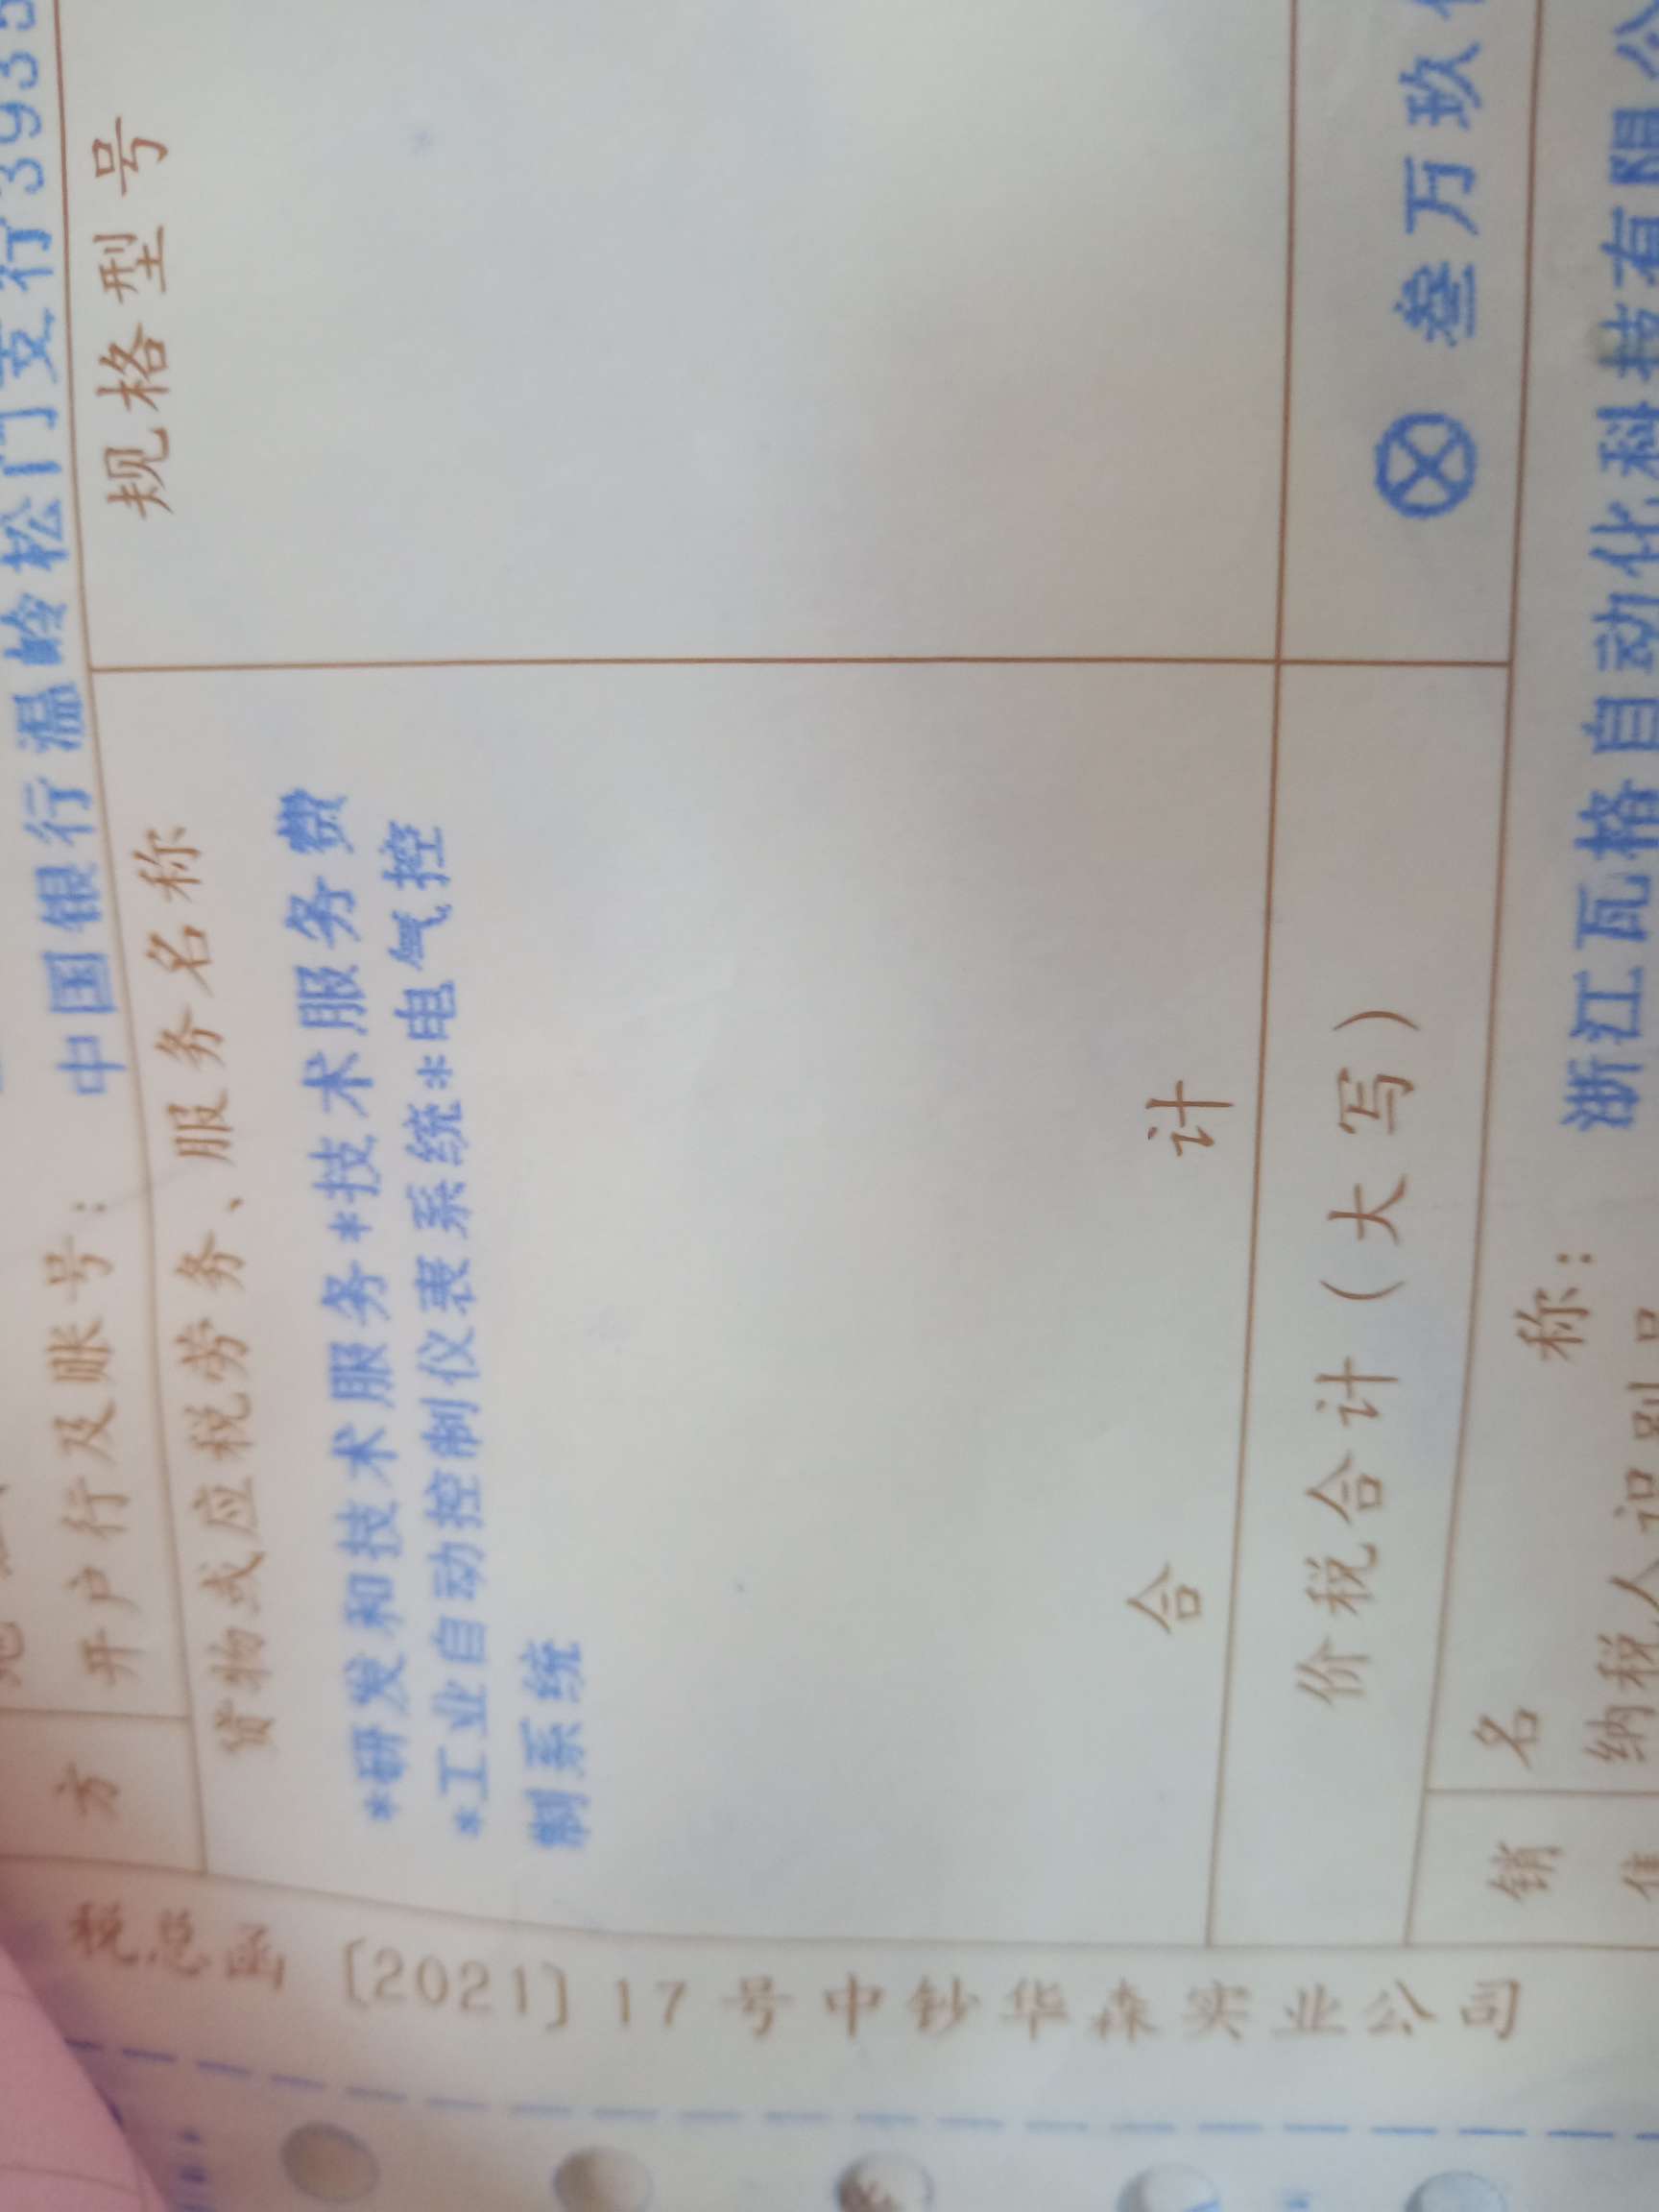 开户行及账号： 中国银行温岭松门支行3935
方
货物或应税劳务、服务名称 规格型号
*研发和技术服务*技术服务费
*工业自动控制仪表系统*电气控
制系统
合 计
价税合计（大写） ⊗ 叁万玖
销 名 称： 浙江瓦格自动化科技有限公
纳税人识别号
税总函〔2021〕17号中钞华森实业公司